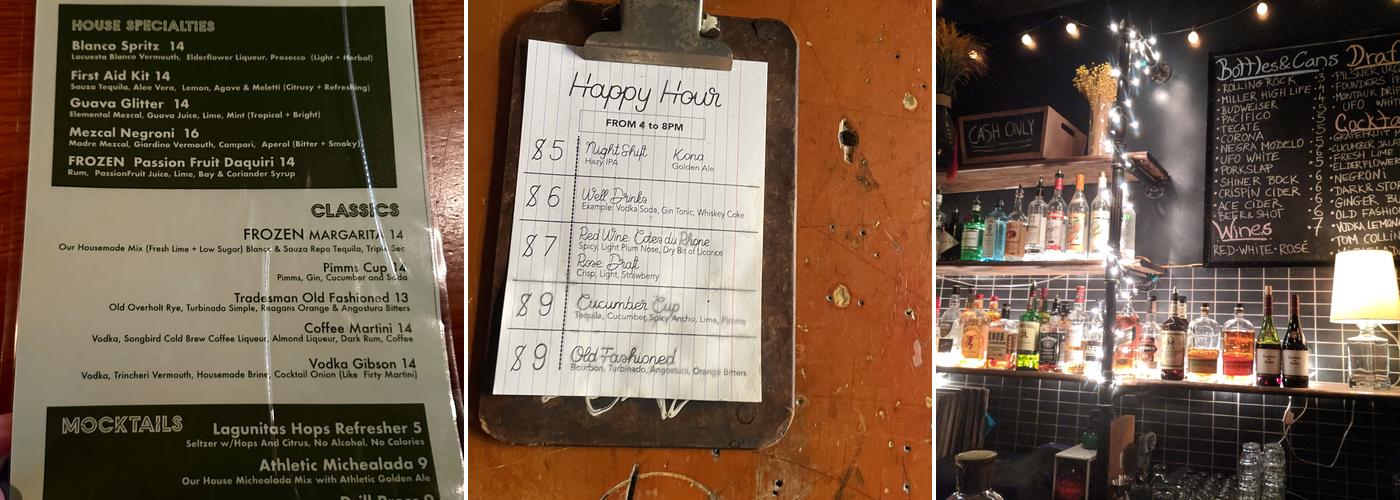 HOUSE SPECIALTIES
Blanco Spritz 14
Lacuesta Blanco Vermouth, Elderflower Liqueur, Prosecco (Light + Herbal)
First Aid Kit 14
Sauza Tequila, Aloe Vera, Lemon, Agave & Meletti (Citrusy + Refreshing)
Guava Glitter 14
Elemental Mezcal, Guava Juice, Lime, Mint (Tropical + Bright)
Mezcal Negroni 16
Madre Mezcal, Giardino Vermouth, Campari, Aperol (Bitter + Smoky)
FROZEN Passion Fruit Daquiri 14
Rum, PassionFruit Juice, Lime, Bay & Coriander Syrup
CLASSICS
FROZEN MARGARITA 14
Our Housemade Mix (Fresh Lime + Low Sugar) Blanco & Sauza Repo Tequila, Triple Sec
Pimms Cup 14
Pimms, Gin, Cucumber and Soda
Tradesman Old Fashioned 13
Old Overholt Rye, Turbinado Simple, Reagans Orange & Angostura Bitters
Coffee Martini 14
Vodka, Songbird Cold Brew Coffee Liqueur, Almond Liqueur, Dark Rum, Coffee
Vodka Gibson 14
Vodka, Trincheri Vermouth, Housemade Brine, Cocktail Onion (Like Firty Martini)
MOCKTAILS
Lagunitas Hops Refresher 5
Seltzer w/Hops And Citrus, No Alcohol, No Calories
Athletic Michealada 9
Our House Michealada Mix with Athletic Golden Ale
Happy Hour
FROM 4 to 8PM
$5
Night Shift
Hazy IPA
Kona
Golden Ale
$6
Well Drinks
Example: Vodka Soda, Gin Tonic, Whiskey Coke
$7
Red Wine: Cotes du Rhone
Spicy, Light Plum Nose, Dry Bit of Licorice
Rose Draft
Crisp, Light, Strawberry
$9
Cucumber Cup
Tequila, Cucumber, Spicy Ancho, Lime, Pimms
$9
Old Fashioned
Bourbon, Turbinado, Angostura, Orange Bitters
CASH ONLY
Bottles & Cans
ROLLING ROCK 3
MILLER HIGH LIFE 4
BUDWEISER 4
PACIFICO 5
TECATE
CORONA 5
NEGRA MODELO
UFO WHITE
PORKSLAP
SHINER BOCK 6
CRISPIN CIDER 6
ACE CIDER
BEER & SHOT 7
Wines
RED·WHITE·ROSÉ
Draf
PILSNER
FOUNDERS
MONTAUK
UFO WHI
Cockta
GRAPEFRUIT
CUCUMBER JALA
FRESH LIME
ELDERFLOWER
NEGRONI
DARK & ST
GINGER
OLD FASHI
VODKA LEMON
TOM COLLIN